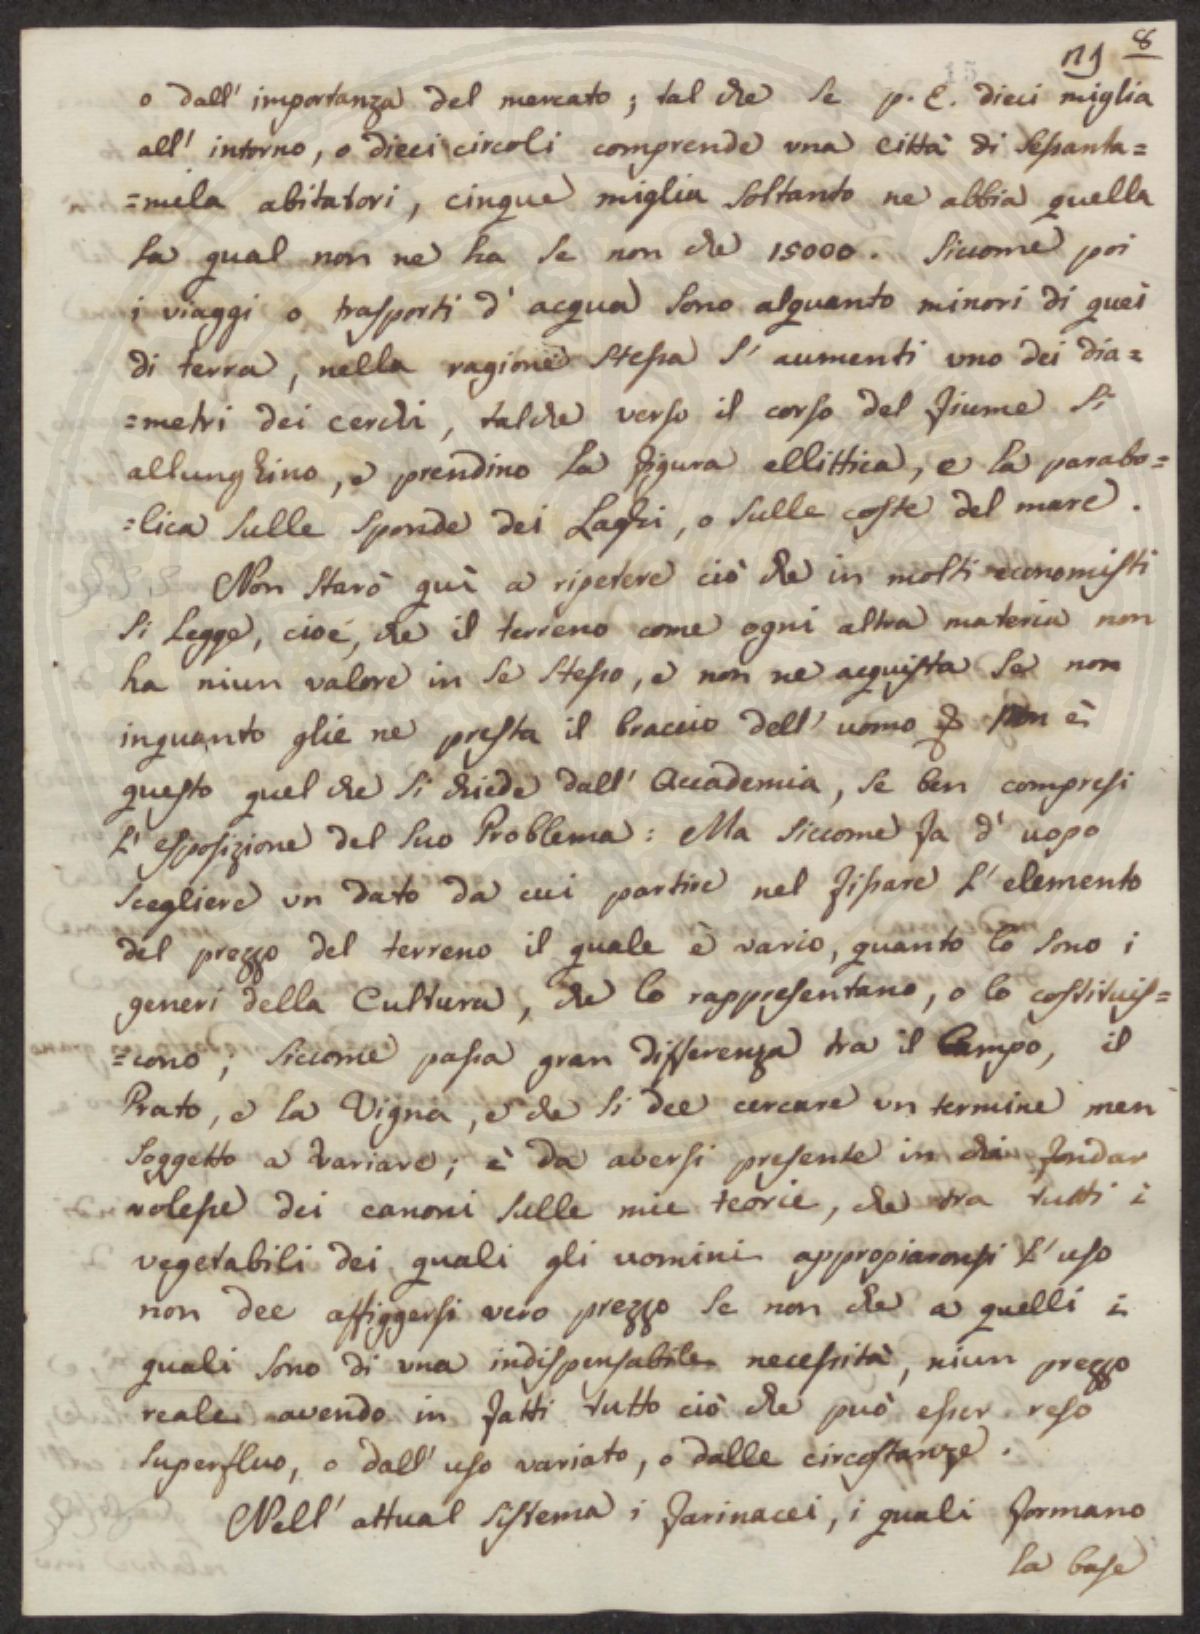 8
o dall' importanza del mercato; tal che se p. E. dieci miglia
all' intorno, o dieci circoli comprende una città di sessanta=
=mila abitatori, cinque miglia soltanto ne abbia quella
la qual non ne ha se non che 15000. Siccome poi
i viaggi o trasporti d' acqua sono alquanto minori di quei
di terra, nella ragione stessa s' aumenti uno dei dia=
=metri dei cerchi, talche verso il corso del fiume si
allunghino, e prendino la figura ellittica, e la parabo=
=lica sulle sponde dei Laghi, o sulle coste del mare.
Non starò quì a ripetere ciò che in molti economisti
si legge, cioé, che il terreno come ogni altra materia non
ha niun valore in se stesso, e non ne acquista se non
inquanto glie ne presta il braccio dell' uomo non è
questo quel che si chiede dall' Accademia, se ben compresi
l' esposizione del suo Problema: Ma siccome fa d' uopo
scegliere un dato da cui partire nel fissare l' elemento
del prezzo del terreno il quale è vario, quanto lo sono i
generi della Cultura, che lo rappresentano, o lo costituis=
=cono; siccome passa gran differenza tra il Campo, il
Prato, e la Vigna, e che si dee cercare un termine men
soggetto a variare; è da aversi presente in chi fondar
volesse dei canoni sulle mie teorie, che tra tutti i
vegetabili dei quali gli uomini appropiaronsi l' uso
non dee affiggersi vero prezzo se non che a quelli i
quali sono di una indispensabile necessità, niun prezzo
reale avendo in fatti tutto ciò che può esser reso
superfluo, o dall' uso variato, o dalle circostanze.
Nell' attual sistema i farinacei, i quali formano
la base